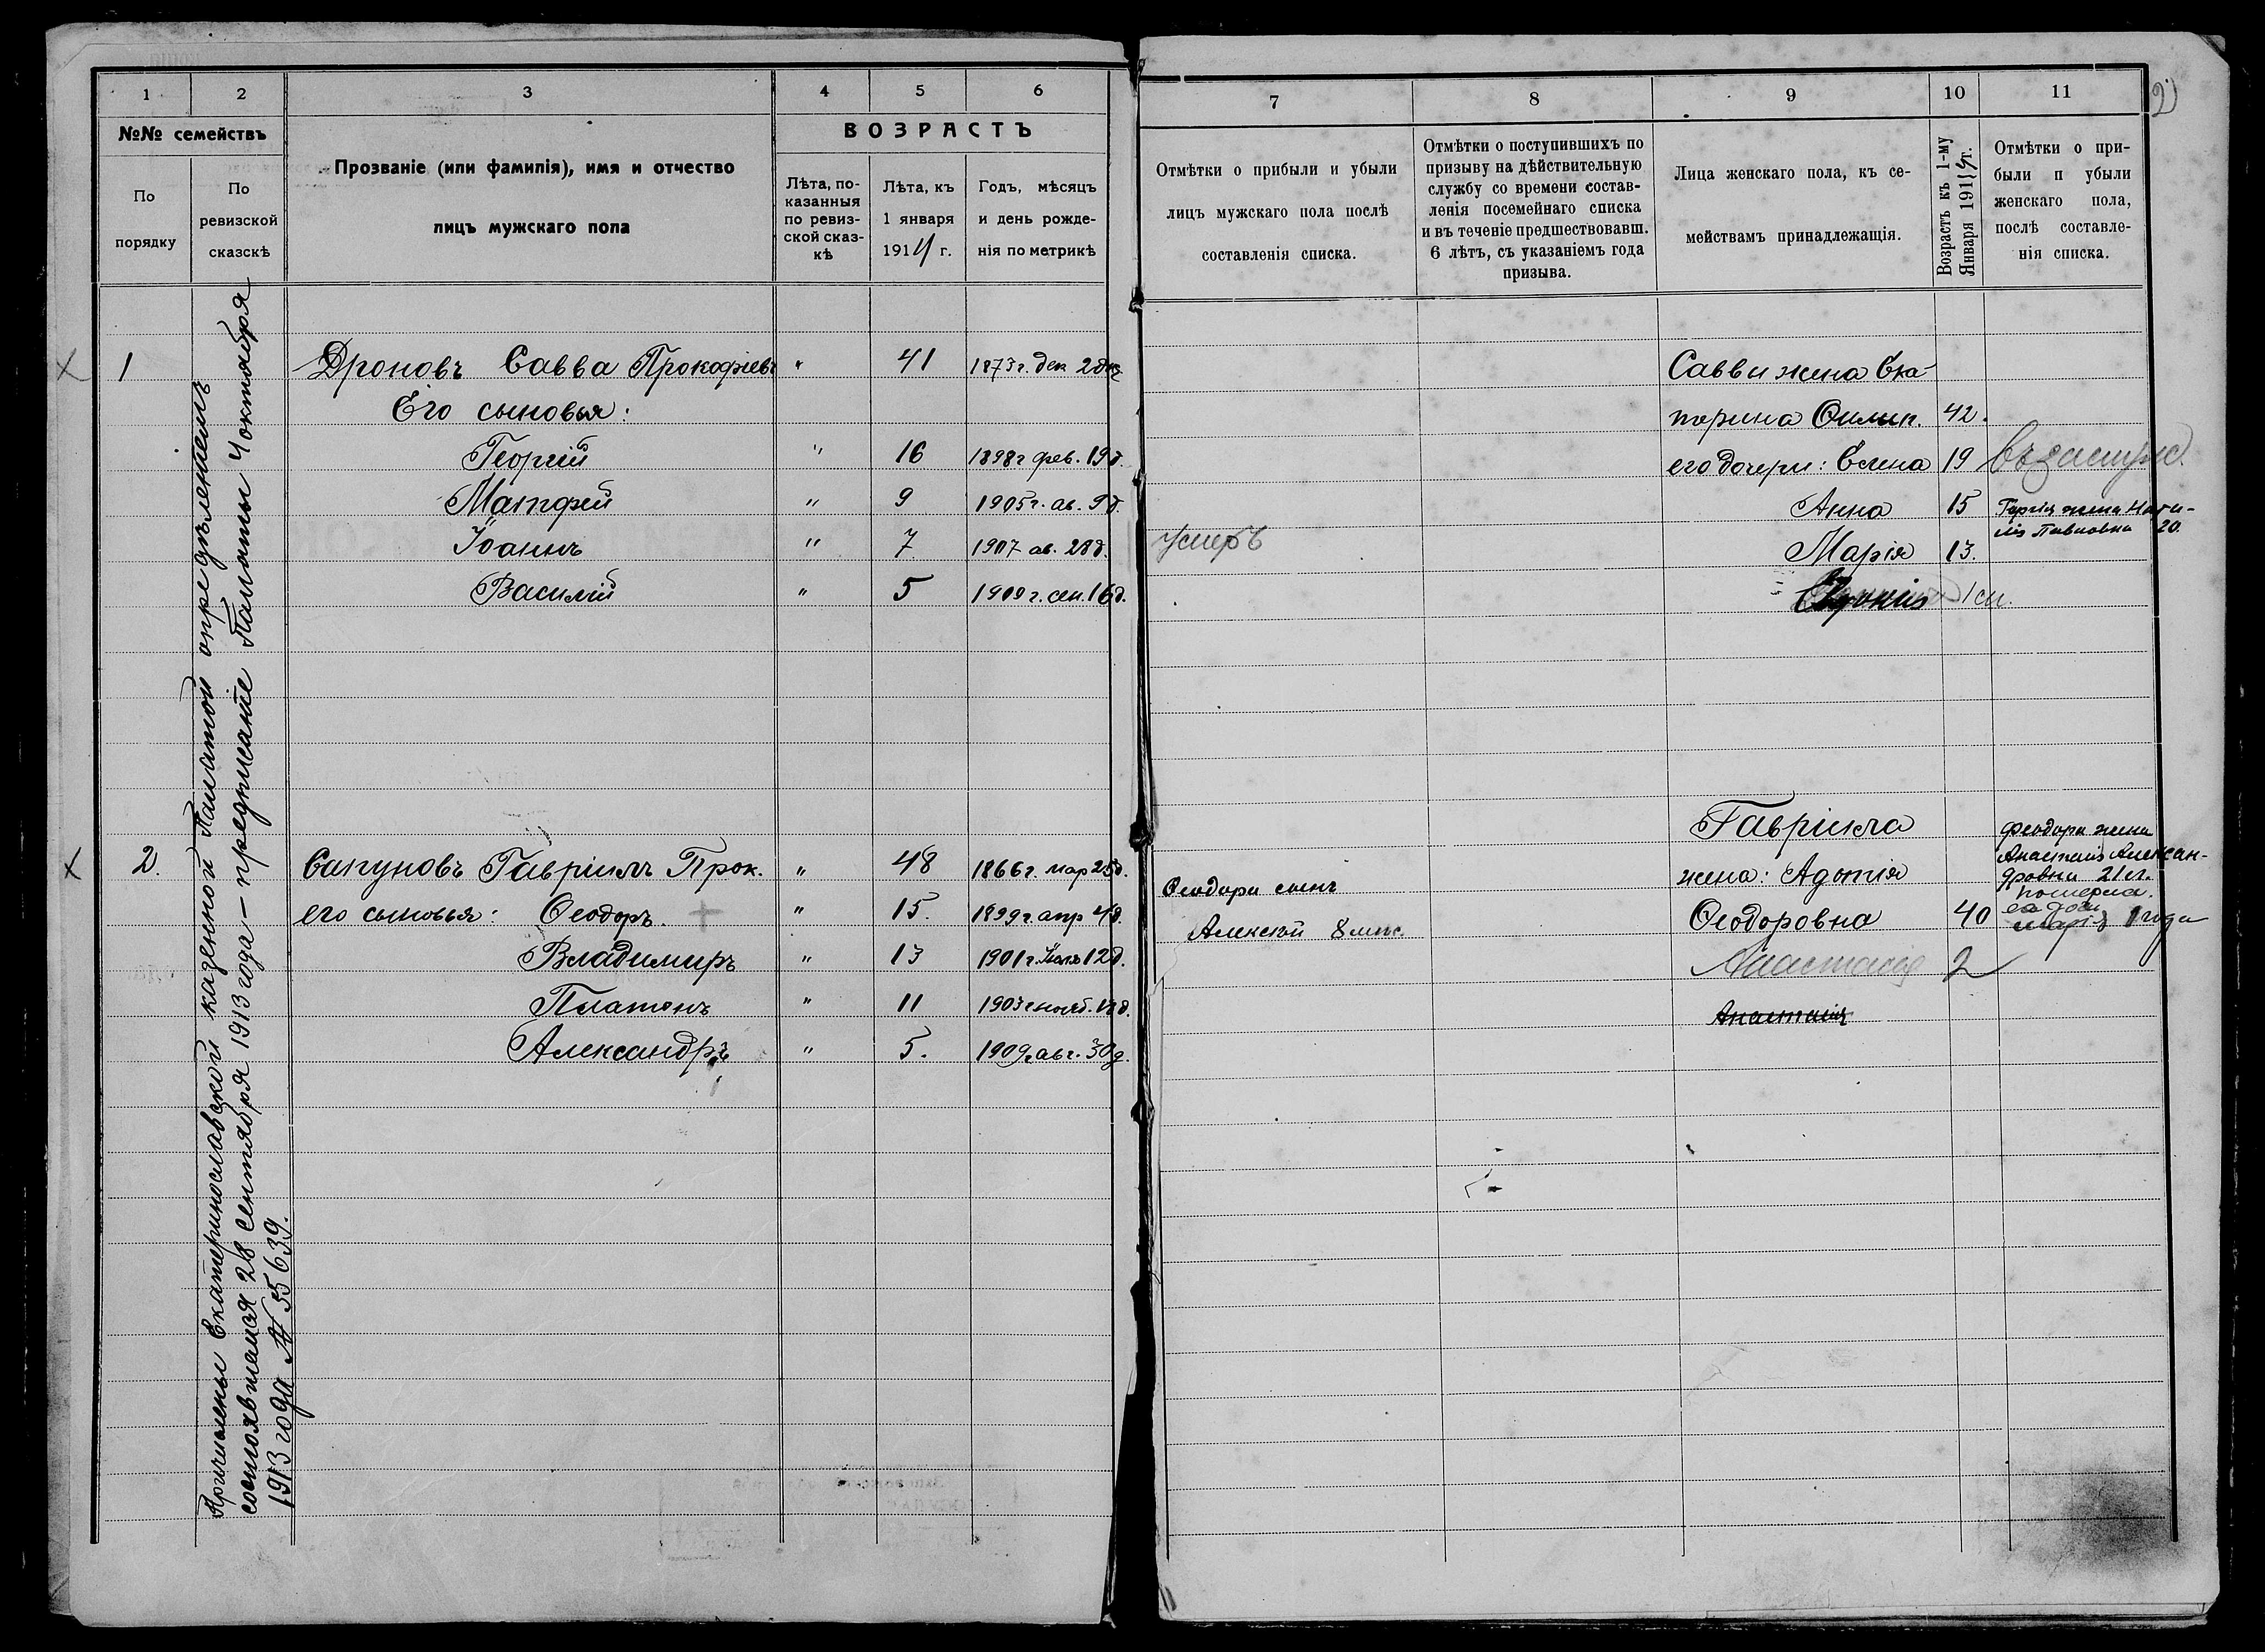 1 2 3 4 5 6
№№ семействъ
По порядку
По ревизской сказскѣ
Прозваніе (или фамилія), имя и отчество
лицъ мужскаго пола
ВОЗРАСТЪ
Лѣта, по-
казанныя
по ревиз-
ской сказ-
кѣ
Лѣта, къ
1 января
1914 г.
Годъ, мѣсяцъ
и день рожде-
нія по метрикѣ
Причислены Екатеринославской казенной Палатой опредѣленіемъ
состоявшемся 28 сентября 1913 года – предписаніе Палаты 4 октября
1913 года № 55639.
1 Дроновъ Савва Прокофіевъ " 41 1873 г. дек 2 дня
Его сыновья:
Георгій " 16 1898 г фев. 19 д.
Матфей " 9 1905 г. ав. 9 д.
Іоаннъ " 7 1907 ав. 28 д.
Василій " 5 1909 г. сен. 16 д.
2. Сапуновъ Гавріилъ Прок. " 48 1866 г. мар 25 д.
его сыновья: Ѳеодоръ. " 15. 1899 г. апр 4 д.
Владимиръ " 13 1901 г. Іюля 12 д.
Платонъ " 11 1903 г нояб. 18 д.
Александръ " 5. 1909 г авг. 30 д.
7 8 9 10 11
Отмѣтки о прибыли и убыли
лицъ мужскаго пола послѣ
составленія списка.
Отмѣтки о поступившихъ по
призыву на дѣйствительную
службу со времени состав-
ленія посемейнаго списка
и въ теченіе предшествовавш.
6 лѣтъ, съ указаніемъ года
призыва.
Лица женскаго пола, къ се-
мействамъ принадлежащія.
Возрастъ къ 1-му
Января 1914 г.
Отмѣтки о при-
были п убыли
женскаго пола,
послѣ составле-
нія списка.
Саввы жена Ека-
терина Филип. 42.
его дочери: Елена 19 Въ замуж.
Анна 15
жена
Павловна 20.
умеръ
Марія 13.
Гавріила
жена: Агафія
Ѳеодоровна 40
Анастасія 2
Анастасія
Ѳеодора сынъ
Алексѣй 8 мѣс.
Феодора жена
Анастасія Алексан-
дровна 21 л.
померла.
ея дочь
Марія 1 года